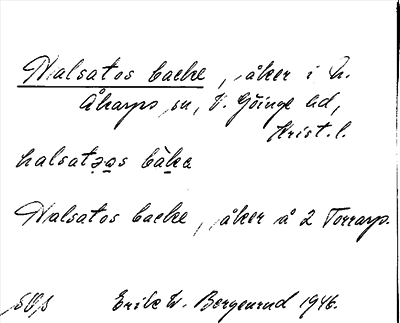 Halsatos backe, åker i N.
Åkarps sn, V. Göinge hd,
Krist. l.
halsatɔs bàka
Halsatos backe, åker å 2 Torrarp.
SOS Erik W. Bergenrud 1946.